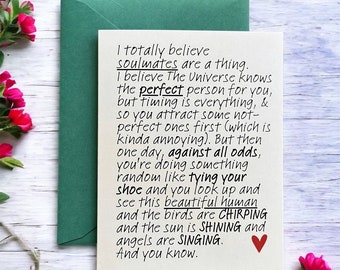 I totally believe
soulmates are a thing.
I believe The Universe knows
the perfect person for you,
but timing is everything, &
so you attract some not-
perfect ones first (which is
kinda annoying). But then
one day, against all odds,
you're doing something
random like tying your
shoe and you look up and
see this beautiful human
and the birds are CHIRPING
and the sun is SHINING and
angels are SINGING.
And you know.